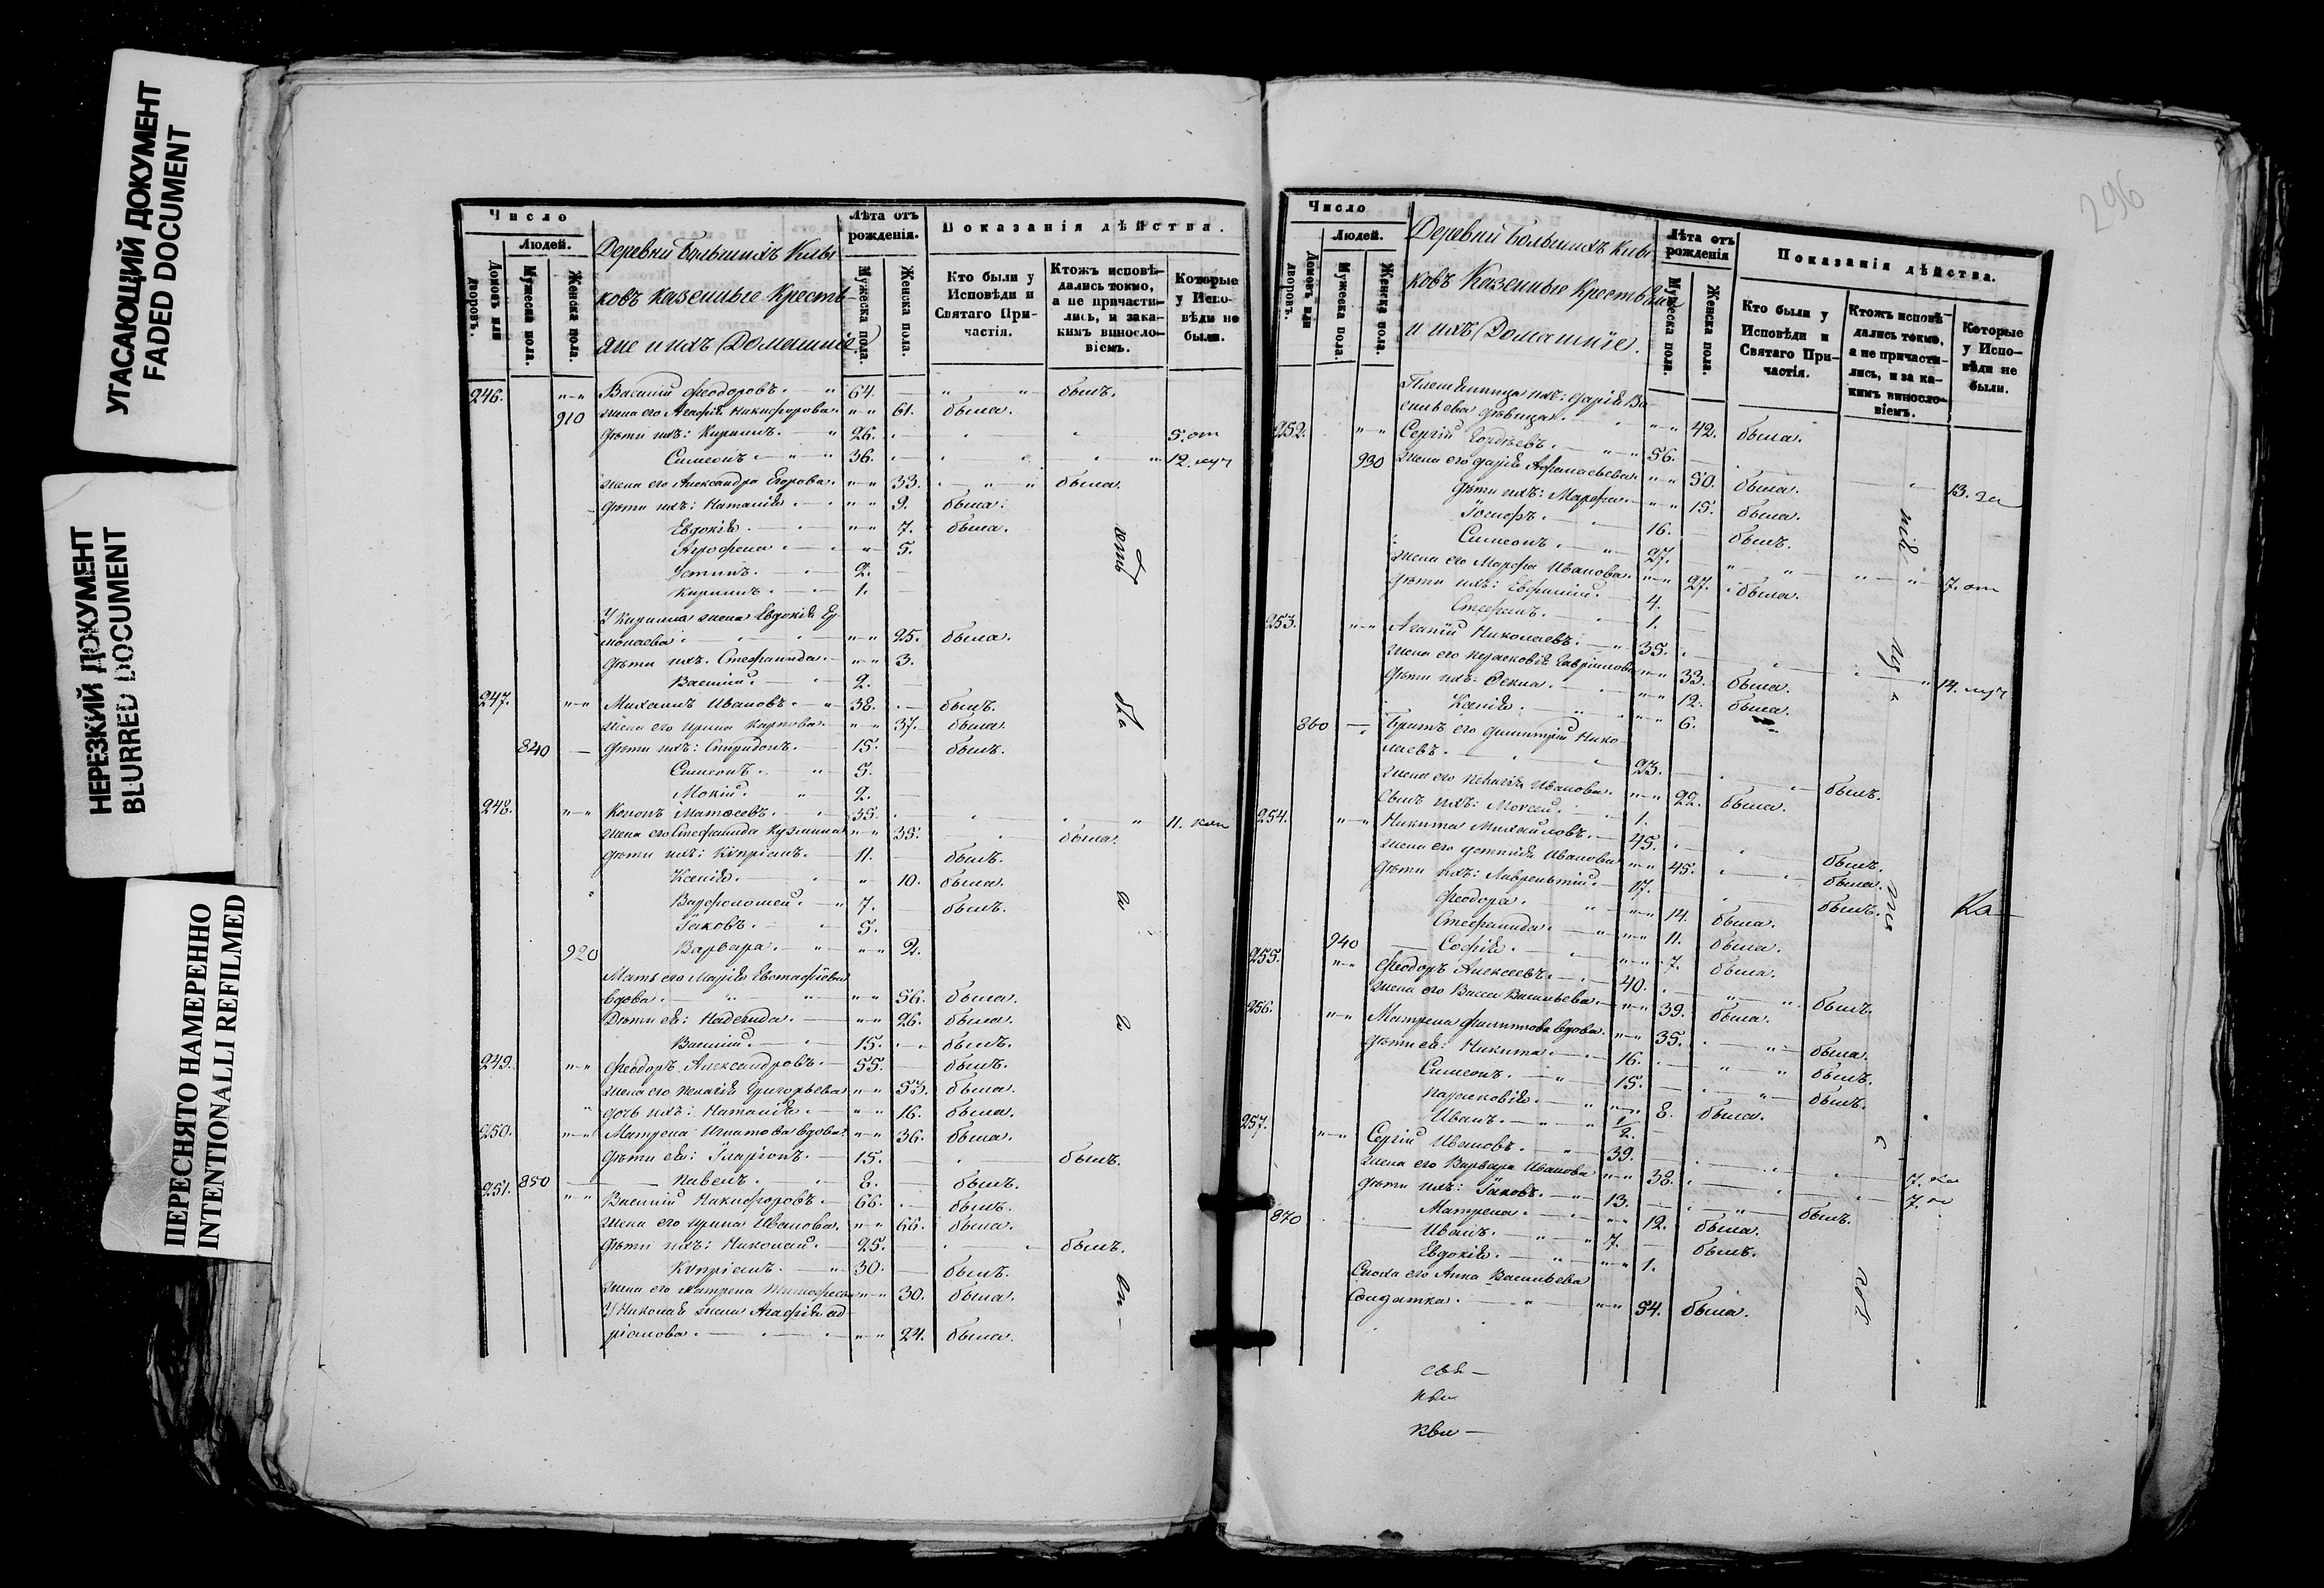 УГАСАЮЩИЙ ДОКУМЕНТ
FADED DOCUMENT
НЕРЕЗКИЙ ДОКУМЕНТ
BLURRED DOCUMENT
ПЕРЕСНЯТО НАМЕРЕННО
INTENTIONALLI REFILMED
Число
Людей.
Домовъ или дворовъ.
Мужеска пола.
Женска пола.
Деревни Большихъ
ковъ казенные Кресть-
яне и ихъ Домашніе.
Лѣта отъ рожденія.
Мужеска пола.
Женска пола.
Показанія дѣйства.
Кто были у Исповѣди и Святаго При-частія.
Ктожъ исповѣ-дались токмо, а не причасти-лись, и зака-кимъ винослo-віемъ.
Которые у Испо-вѣди не были.
246. Василій Феодоровъ. 64. былъ.
910 жена его Агафія Никифорова 61. была.
дѣти ихъ: Кириллъ. 26. 5. от
Симеонъ. 36. 12.
жена его Александра Егорова. 33. была.
дѣти ихъ: Наталія. 9. была.
Евдокія. 7. была.
Агрофена 5.
Устинъ. 2.
Кириллъ. 1.
У Кирилла жена Евдокія
25. была.
дѣти ихъ. Стефанида. 3.
Василій. 2.
247. Михаилъ Ивановъ. 38. былъ.
жена его Ирина Карпова 37. была
840 дѣти ихъ: Спиридонъ. 15. былъ.
Симеонъ. 5.
Мокій. 2.
248. Кононъ Матѳеевъ. 35. 11.
жена его Стефанида Кузмина 35. была.
дѣти ихъ: Кѵпріанъ. 11. былъ.
Ксенія. 10. была.
Варфоломей. 7. былъ.
Іаковъ. 5.
920 Варвара. 2.
Мать его Марія Евстафіева
вдова. 56. была.
Дѣти ея: Надежда. 26. была.
Василій. 15. былъ.
249. Феодоръ Александровъ. 55. былъ.
жена его Пелагія Григорьева 53. была.
дочь ихъ: Наталія. 16. была.
250. Матрена Игнатова вдова. 36. была.
дѣти ея: Іларіонъ. 15. былъ.
850 Павелъ. 8. былъ.
251. Василій Никифоровъ. 66. былъ.
жена его Ирина Иванова. 66. была.
дѣти ихъ: Николай. 25. былъ.
Кѵпріанъ. 30. былъ.
жена его Матрена Тимофеева 30. была.
У Николая жена Агафія Ад
ріанова. 24. была.
296
Число
Людей.
Домовъ или дворовъ.
Мужеска пола.
Женска пола.
Деревни Большихъ
ковъ Казенные Крестьяне
и ихъ Домашніе.
Лѣта отъ рожденія
Мужеска пола.
Женска пола.
Показанія дѣйства.
Кто были у Исповѣди и Святаго При-частія.
Ктожъ исповѣ-дались токмо, а не причасти-лись, и за ка-кимъ винослo-віемъ.
Которые у Испо-вѣди не были.
Племянница ихъ: Дарія Ва
сильева дѣвица. 42. была.
252. Сергій Гордѣевъ. 56. 13.
930 жена его Дарія Афанасьева. 50. была.
дѣти ихъ: Марфа. 15. была.
Іосифъ. 16. былъ.
Симеонъ. 27. 7. от
жена его Марфа Иванова. 27. была.
дѣти ихъ: Евфимій. 4.
Стефанъ. 1.
253. Агапій Николаевъ. 35. 14.
жена его Парасковія Гавріилова 33. была.
дѣти ихъ: Ѳекла. 12. была.
Ксенія. 6.
860 Братъ его Димитрій Нико
лаевъ. 23. былъ.
жена его Пелагія Иванова. 22. была.
сынъ ихъ: Моисей. 1.
254. Никита Михайловъ. 45. былъ.
жена его Устинія Иванова 45. была.
дѣти ихъ: Лаврентій. 17. былъ.
Феодора. 14. была.
Стефанида. 11. была.
940 Софія. 7. была.
255. Феодоръ Алексеевъ. 40. былъ.
жена его Васса Васильева. 39. была.
256. Матрена Филиппова вдова. 35. была.
дѣти ея: Никита. 16. былъ.
Симеонъ. 15. былъ.
Парасковія. 8. была.
Иванъ. 1/2.
257. Сергій Ивановъ. 39. 7.
жена его Варвара Иванова 38. 7.
дѣти ихъ: Іаковъ. 13. былъ.
Матрена. 12. была.
870 Иванъ. 7. былъ.
Евдокія. 1.
Сноха его Анна Васильева
Солдатка. 54. была.